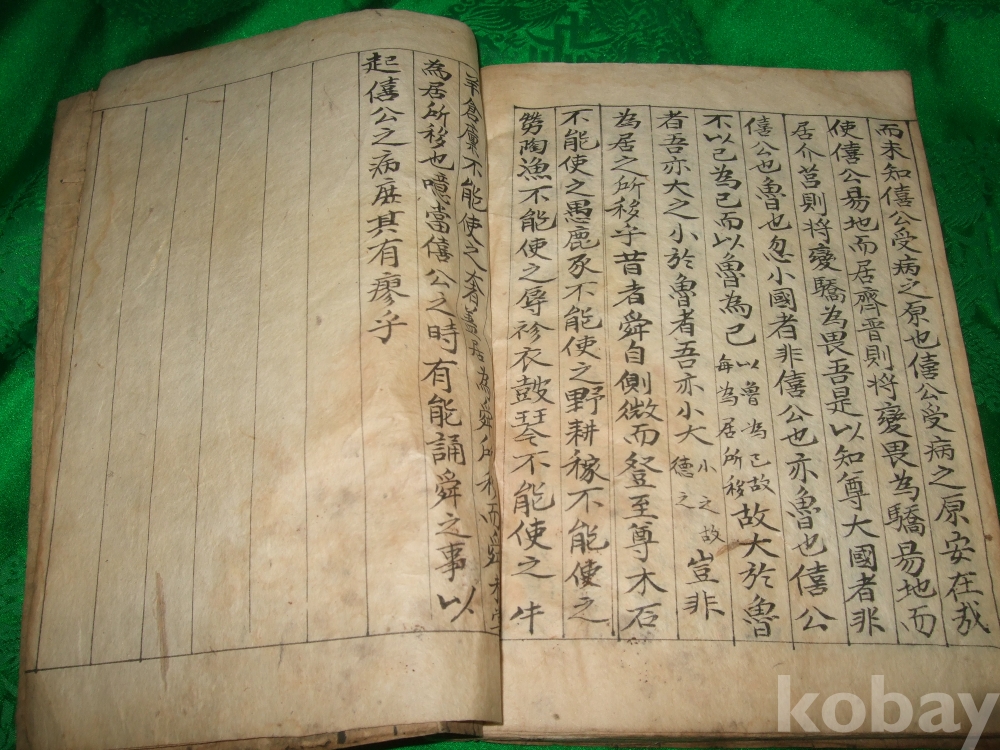 而未知僖公受病之原也僖公受病之原安在哉
使僖公易地而居齊晋則将變畏為驕易地而
居介莒則将變驕為畏吾是以知尊大國者非
僖公也魯也忽小國者非僖公也亦魯也僖公
不以己為己而以魯為己以魯為己故每為居所移故大於魯
者吾亦大之小於魯者吾亦小大小之故德之豈非
為居之所移乎昔者舜自側微而登至尊木石
不能使之愚鹿豕不能使之野耕稼不能使之
勞陶漁不能使之辱袗衣鼓琴不能使之牛
羊倉廩不能使之奢為舜所移而舜
為居所移也噫當僖公之時有能誦舜之事以
起僖公之病庶其有瘳乎
kobay